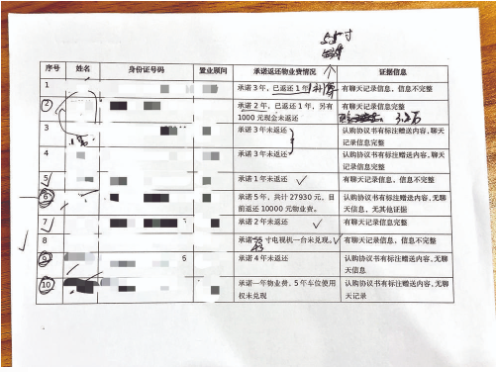 55寸
序号 姓名 身份证号码 置业顾问 承诺返还物业费情况 证据信息
1 承诺 3年，已返还 1年 有聊天记录信息，信息不完整
2 承诺 2年，已返还 1年，另有 有聊天记录信息完整
1000 元现金未返还 3.2万
3 承诺 3年未返还 认购协议书有标注赠送内容，聊
天记录信息完整
4 承诺 3年未返还 认购协议书有标注赠送内容，聊
天记录信息完整
5 承诺 1年未返还 有聊天记录信息，信息不完整
6 承诺 5年，共计 27930 元，目 认购协议书有标注赠送内容，无聊
前返还 10000 元物业费。 天信息，无其他证据
7 承诺 2年未返还 有聊天记录信息完整
8 承诺 寸电视机一台未兑现。 有聊天记录信息，信息不完整
9 6 承诺 4年未返还 认购协议书有标注赠送内容，无聊
天信息
10 承诺一年物业费，5年车位使用 认购协议书有标注赠送内容，无聊
权未兑现 天记录